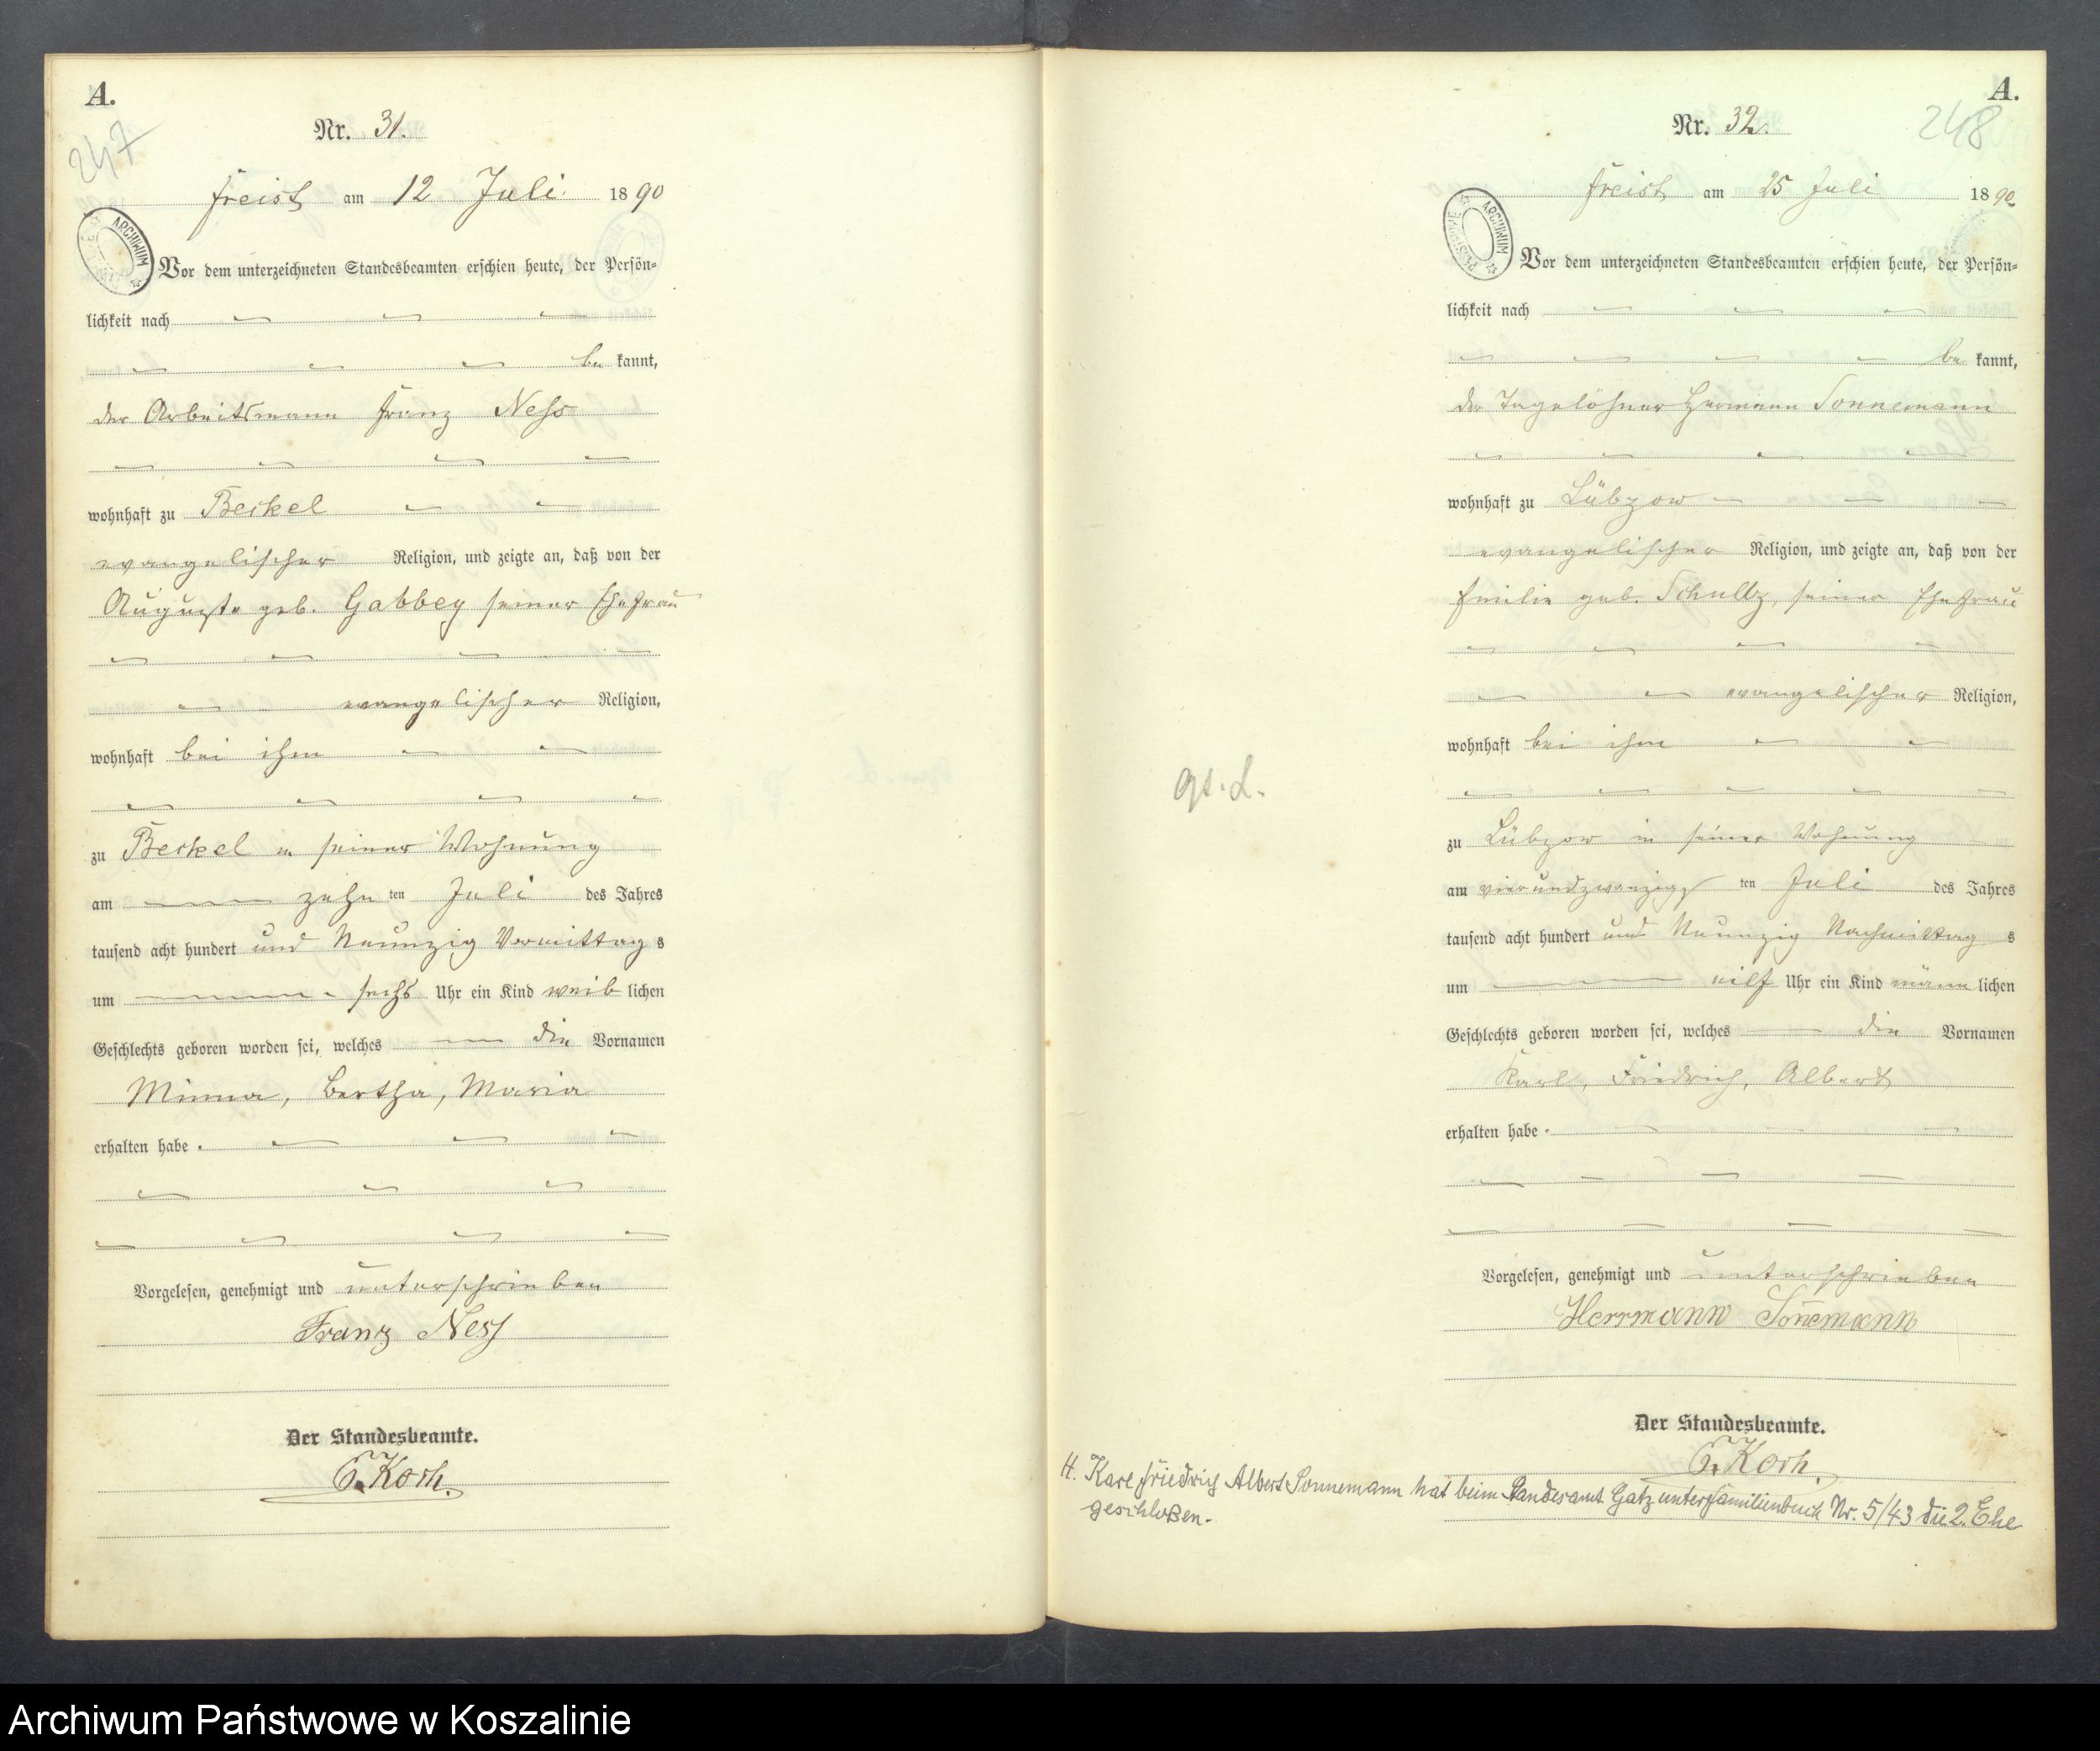 A.
247
Nr. 31.
Freist am 12 Juli 1890
ARCHIWUM
Vor dem unterzeichneten Standesbeamten erschien heute, der Persön=
lichkeit nach
be kannt,
der Arbeitsmann Franz Ness
wohnhaft zu Beckel
evangelischer Religion, und zeigte an, daß von der
Auguste geb. Gabbey seiner Ehefrau
evangelischer Religion,
wohnhaft bei ihm
zu Beckel in seiner Wohnung
am zehn ten Juli des Jahres
tausend acht hundert und Neunzig Vormittag s
um sechs Uhr ein Kind weib lichen
Geschlechts geboren worden sei, welches die Vornamen
Minna, Bertha, Maria
erhalten habe.
Vorgelesen, genehmigt und unterschrieben
Franz Ness
Der Standesbeamte.
Koch.
A.
248
Nr. 32.
Freist am 25 Juli 1890
ARCHIWUM PAŃSTWOWE
Vor dem unterzeichneten Standesbeamten erschien heute, der Persön=
lichkeit nach
be kannt,
der Tagelöhner Hermann Sonnemann
wohnhaft zu Lübzow
evangelischer Religion, und zeigte an, daß von der
Emilie geb. Schultz, seiner Ehefrau
evangelischer Religion,
wohnhaft bei ihm
zu Lübzow in seiner Wohnung
am vierundzwanzigs ten Juli des Jahres
tausend acht hundert und Neunzig Nachmittag s
um eilf Uhr ein Kind männ lichen
Geschlechts geboren worden sei, welches die Vornamen
Karl, Friedrich, Albert
erhalten habe.
Vorgelesen, genehmigt und unterschrieben
Herrmann Son̄emann
Der Standesbeamte.
Koch.
H. Karl Friedrich Albert Sonnemann hat beim Standesamt Gatz unter Familienbuch Nr. 5/43 die 2. Ehe
geschloßen.
Archiwum Państwowe w Koszalinie